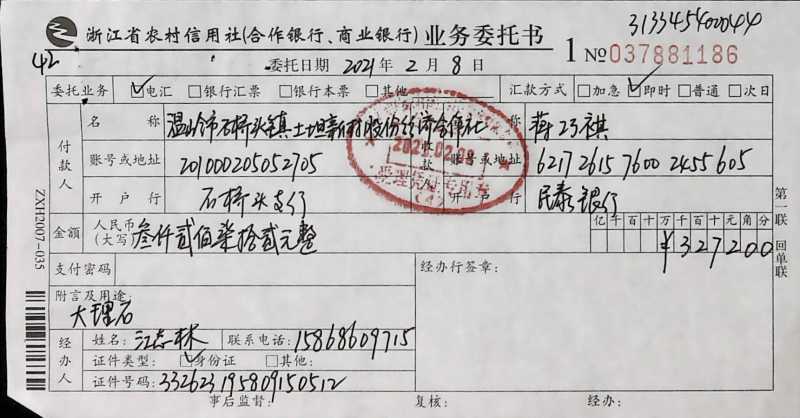 浙江省农村信用社(合作银行、商业银行) 业务委托书
313345400044
1 No 037881186
42
委托日期 2021年 2月 8日
委托业务 ☑电汇 □银行汇票 □银行本票 □其他 汇款方式 □加急 ☑即时 □普通 □次日
付款人
名称 温岭市石桥头镇土坦新村股份经济合作社
账号或地址 201000205052705
开户行 石桥头支行
收款
账号或地址 6217 2615 7600 2455 605
开户行 民泰银行
2021.02.08
受理凭证专用章
(4)
金额 人民币(大写) 叁仟贰佰柒拾贰元整
亿千百十万千百十元角分
¥327200
支付密码
经办行签章:
附言及用途:
大理石
经办人
姓名: 江志林 联系电话: 15868609715
证件类型: ☑身份证 □其他:
证件号码: 332623195809150512
事后监督: 复核: 经办:
ZXH2007-035
第一联 回单联